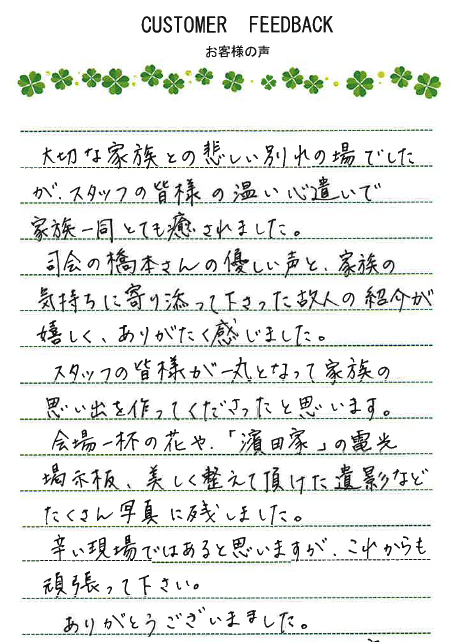 CUSTOMER FEEDBACK
お客様の声
大切な家族との悲しい別れの場でした
が、スタッフの皆様の温い心遣いで
家族一同とても癒されました。
司会の橋本さんの優しい声と、家族の
気持ちに寄り添って下さった故人の紹介が
嬉しく、ありがたく感じました。
スタッフの皆様が一丸となって家族の
思い出を作ってくださったと思います。
会場一杯の花や、「濱田家」の電光
掲示板、美しく整えて頂けた遺影など
たくさん写真に残しました。
辛い現場ではあると思いますが、これからも
頑張って下さい。
ありがとうございまました。